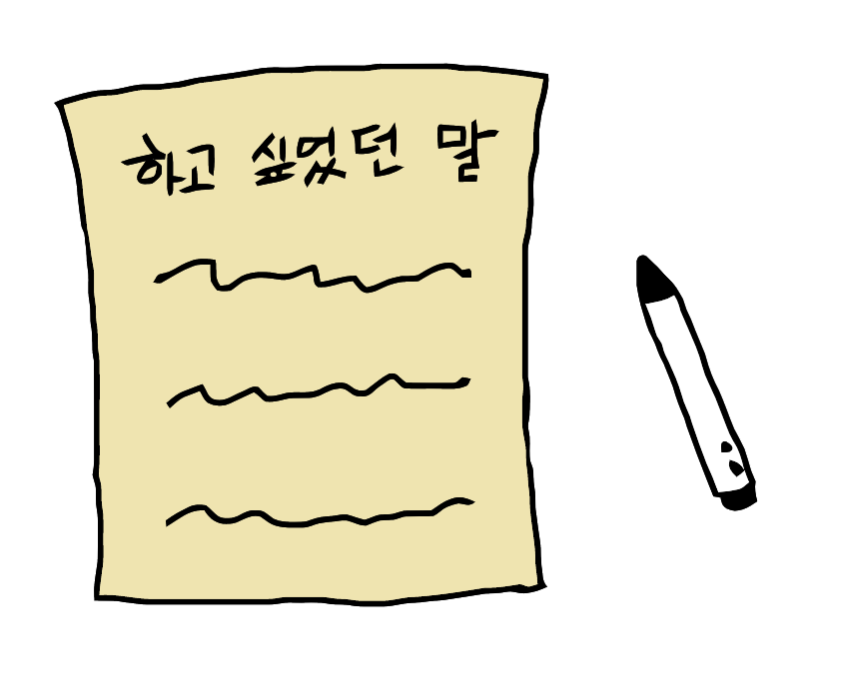 하고 싶었던 말